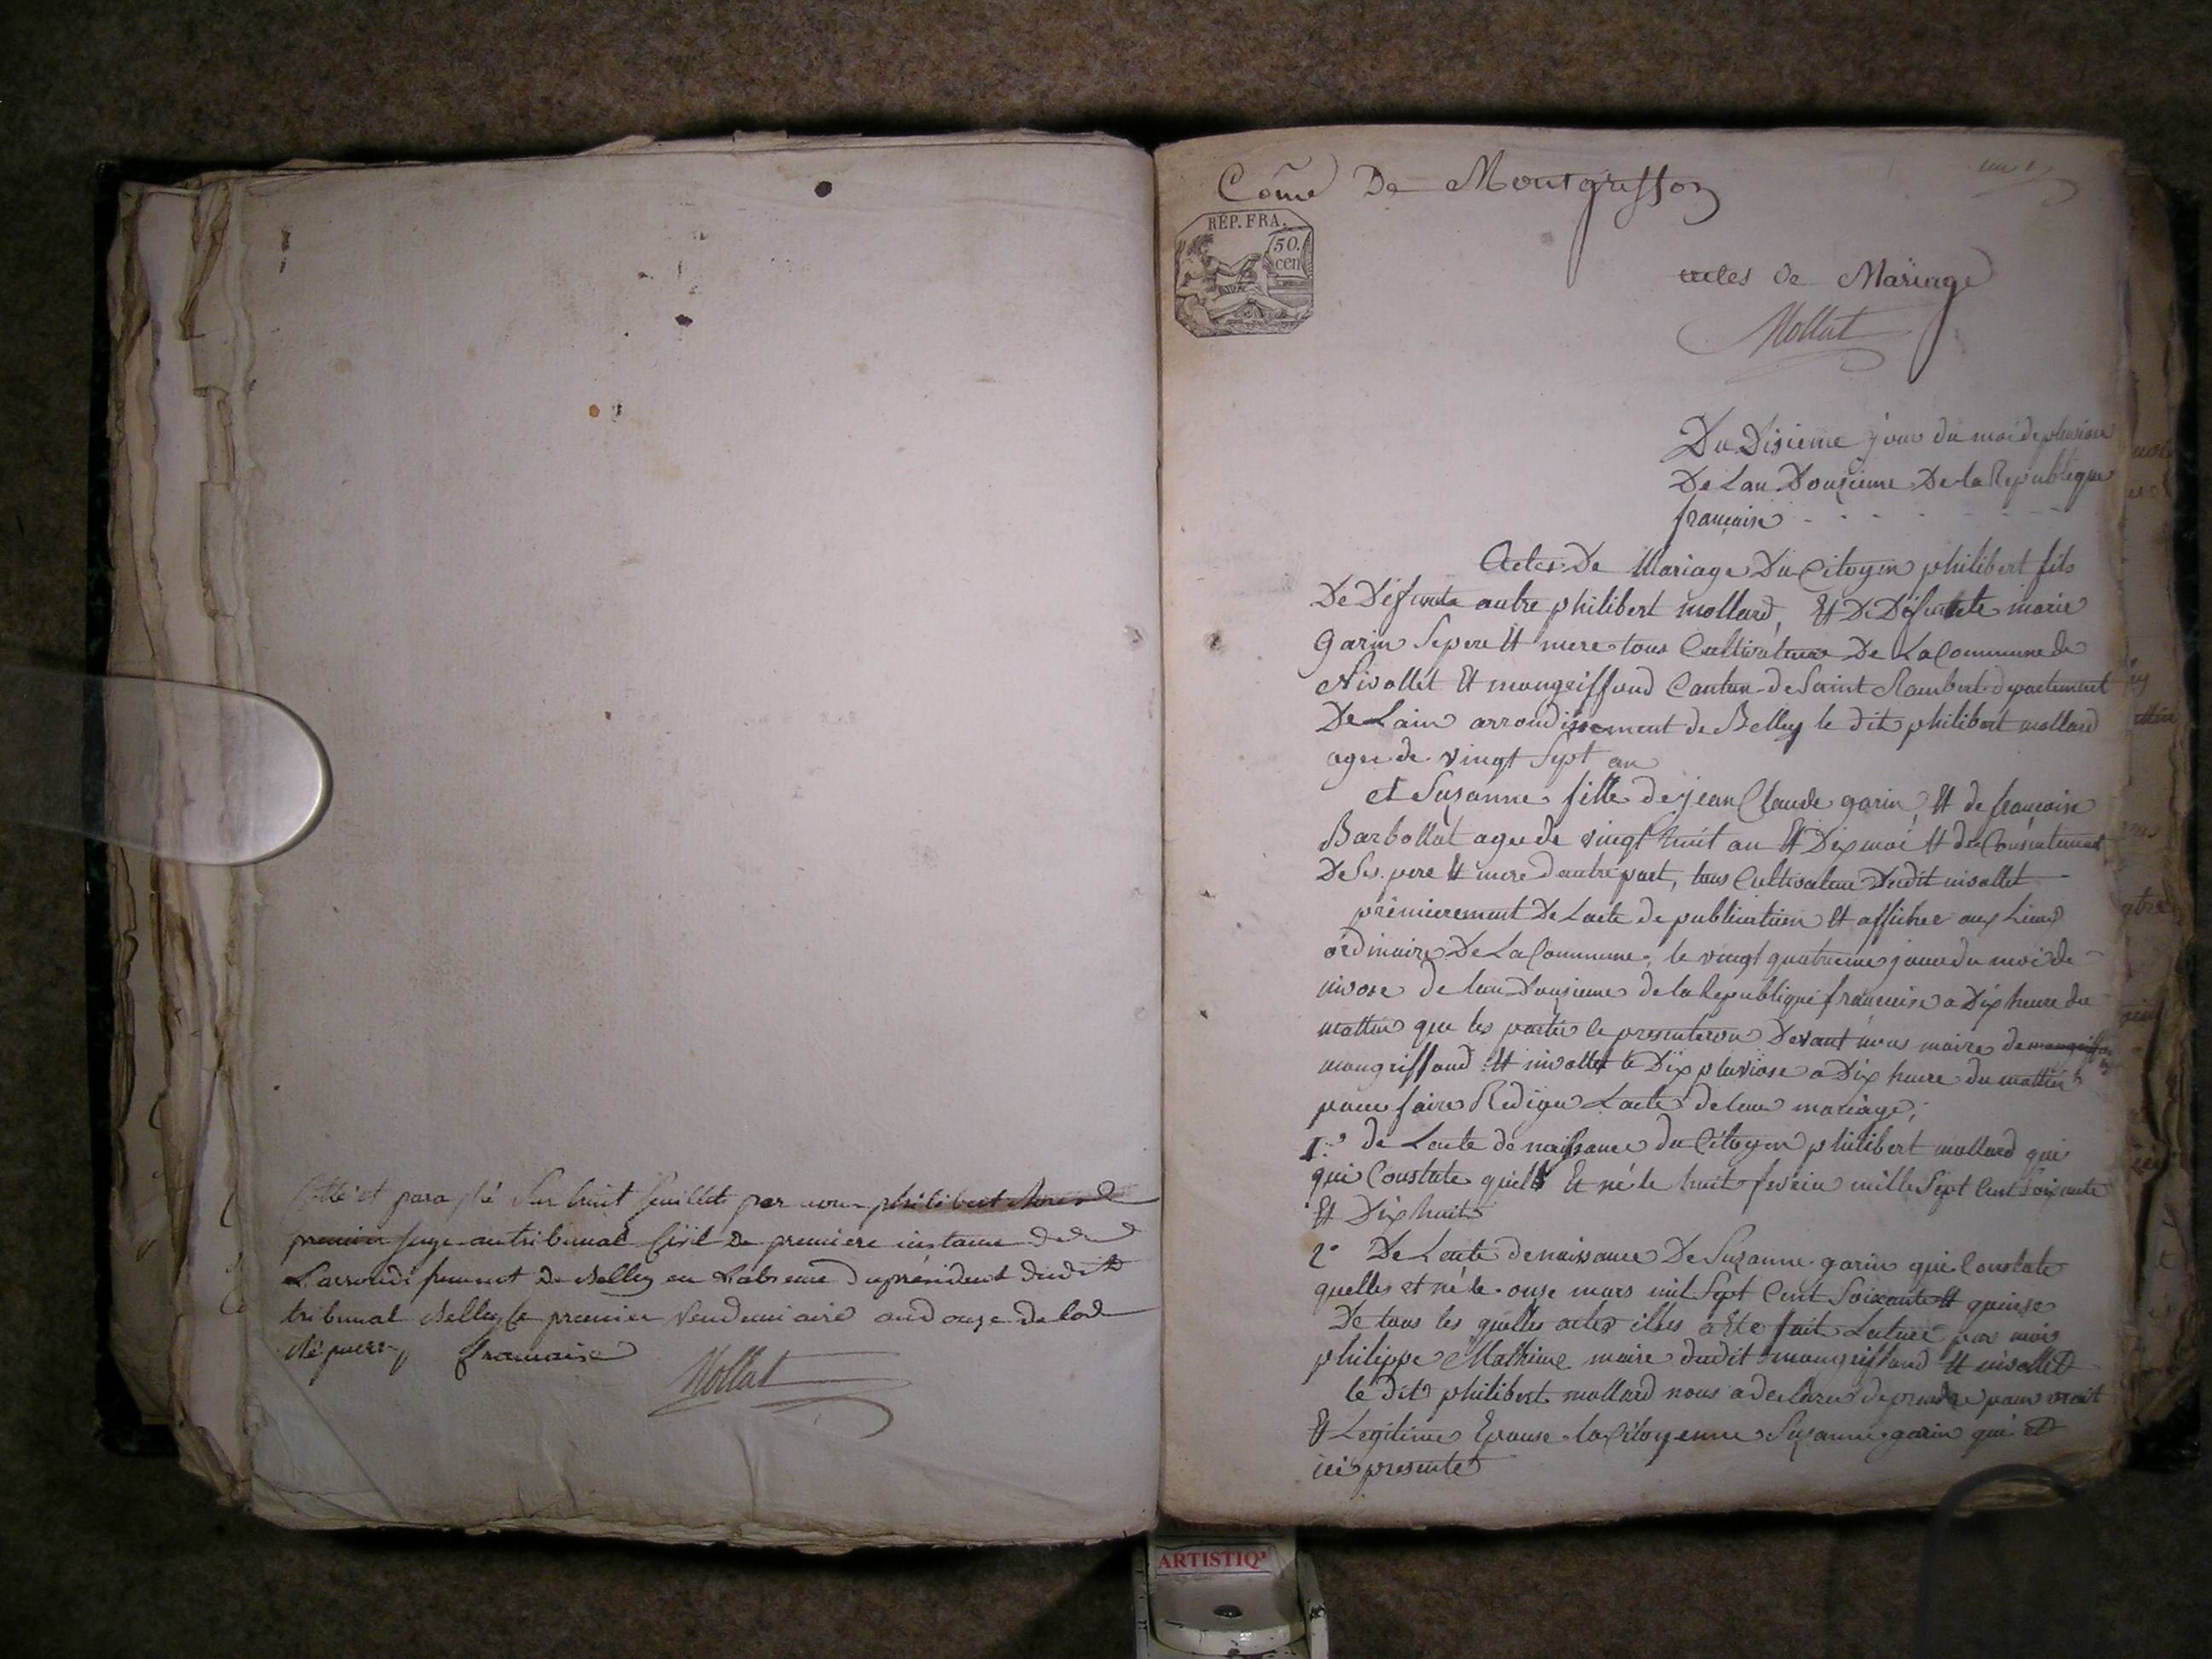 Cotté et paraphé Sur huit feuillets par nous philibert
premier juge au tribunal Civil De premiere instance
L'arrondissement De Belley en L'absence du président dudit
tribunal Belley le premier Vendemiaire an douze de la
française
Mollat
Cõme De Montgriffon
RÉP. FRA.
50. cen
actes de Mariage
Mollat
Du Disieme jour du moi de pluviose
De Lan Dousieme De la Republique
francaise
Actes De Mariage Du Citoyen philibert fils
De Défunta autre philibert mollard, Et De Défunte marie
Garin Sepere Et mere tous Cultivateurs De La Commune de
Nivollet Et mongriffond Canton de Saint Rambert departement
De Lain arrondissement de Belley le dit philibert mollard
agee de vingt Sept an
et Suzanne fille de jean Claude garin Et de francoise
Barbollat agee de vingt huit an Et Dix moi Et de Consentement
De Ses pere Et mere dautre part, tous Cultivateur Dudit nivollet
premierement De Lacte de publication Et afficher aux Lieux
ordinaire De La Commune, le vingt quatrieme jour du moi de
nivose de lan Dousieme de la Republique francaise a Dix heure du
mattin que les partie le presenteron Devant nous maire de
mongriffond Et nivollet le Dix pluviose a Dix heure du mattin
pour faire Rediger Lacte de leur mariage;
1.º de Lacte de naissance du Citoyen philibert mollard qui
qui Constate quill Et né le huit fevrier mille Sept Cent Soixante
Et Dix huit
2º De Lacte de naissance De Suzanne garin qui Constate
quelles et né le onze mars mil Sept Cent Soixante Et quinse
De tous les quelles actes illes a Ete fait Lature par moi
philippe Mathieu maire dudit mongriffond Et nivollet
le dit philibert mollard nous a declarer de prendre pour
Et Legitime Epouse la Citoyenne Suzanne garin qui et
ici presente
ARTISTIQ'